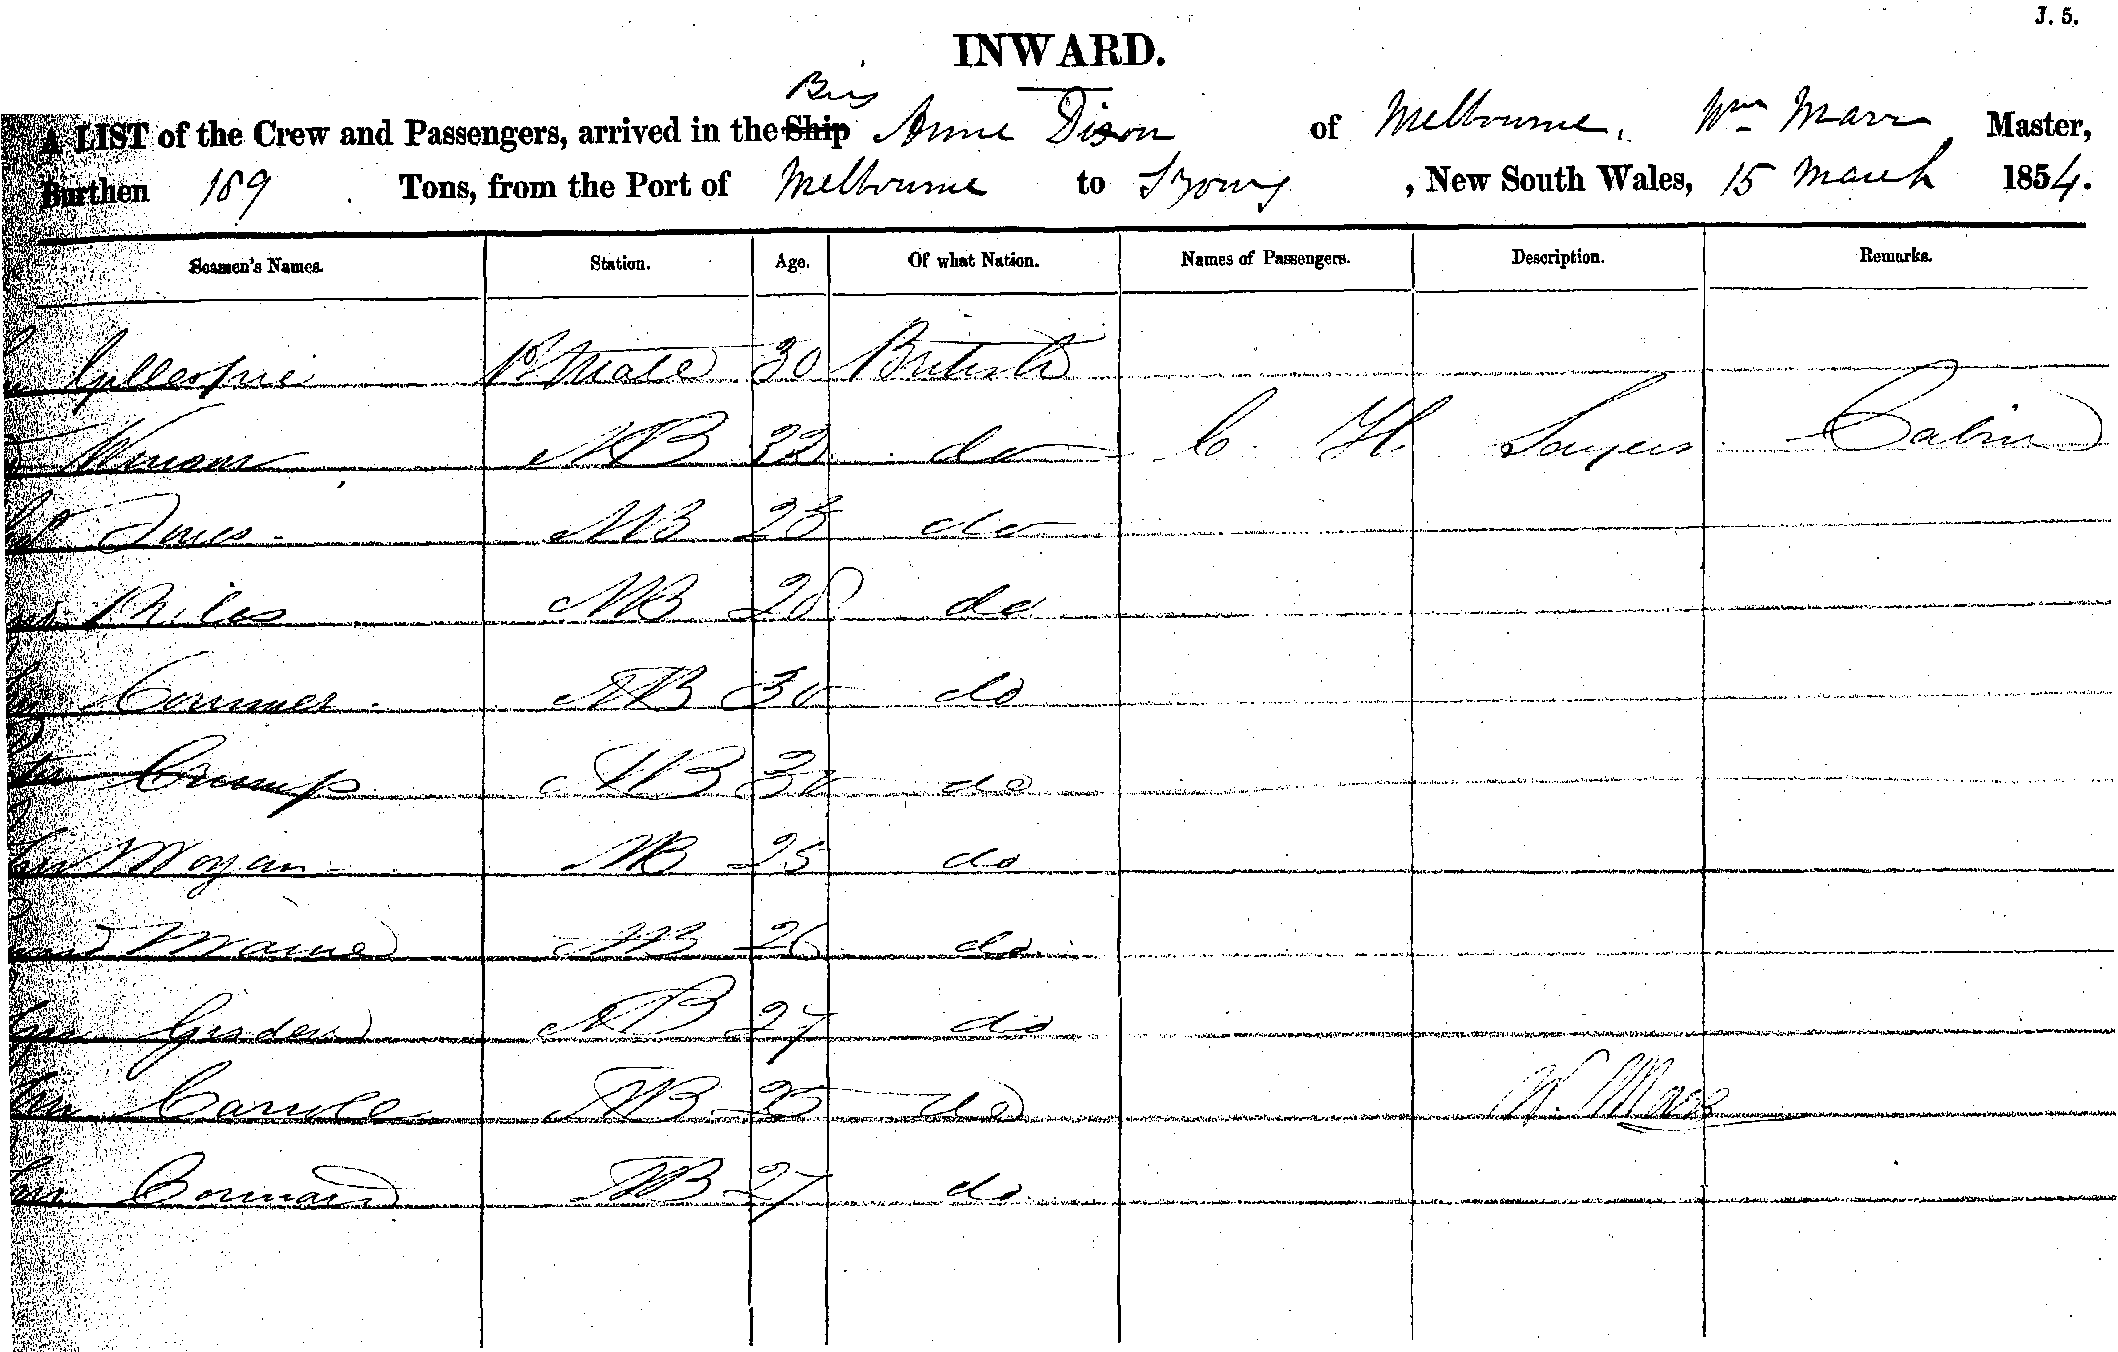 J. 5.
INWARD.
Brig
A LIST of the Crew and Passengers, arrived in the Ship Anne Dixon of Melbourne, Wm Marr Master,
Burthen 169 Tons, from the Port of Melbourne to Sydney, New South Wales, 15 March 1854.
Seamen's Names. Station. Age. Of what Nation. Names of Passengers. Description. Remarks.
Gillespie 1st Mate 30 British
AB 32 do C. H. Sayers Cabin
Jones AB 28 do
Miles AB 28 do
AB 30 do
Crump AB 30 do
Morgan AB 25 do
AB 26 do
AB 27 do
Carroll AB 25 do W. Marr
AB 27 do